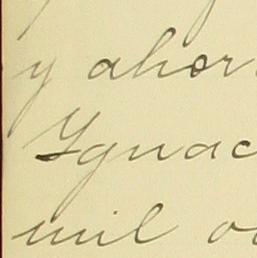 y ahor
Ygnac
mil o